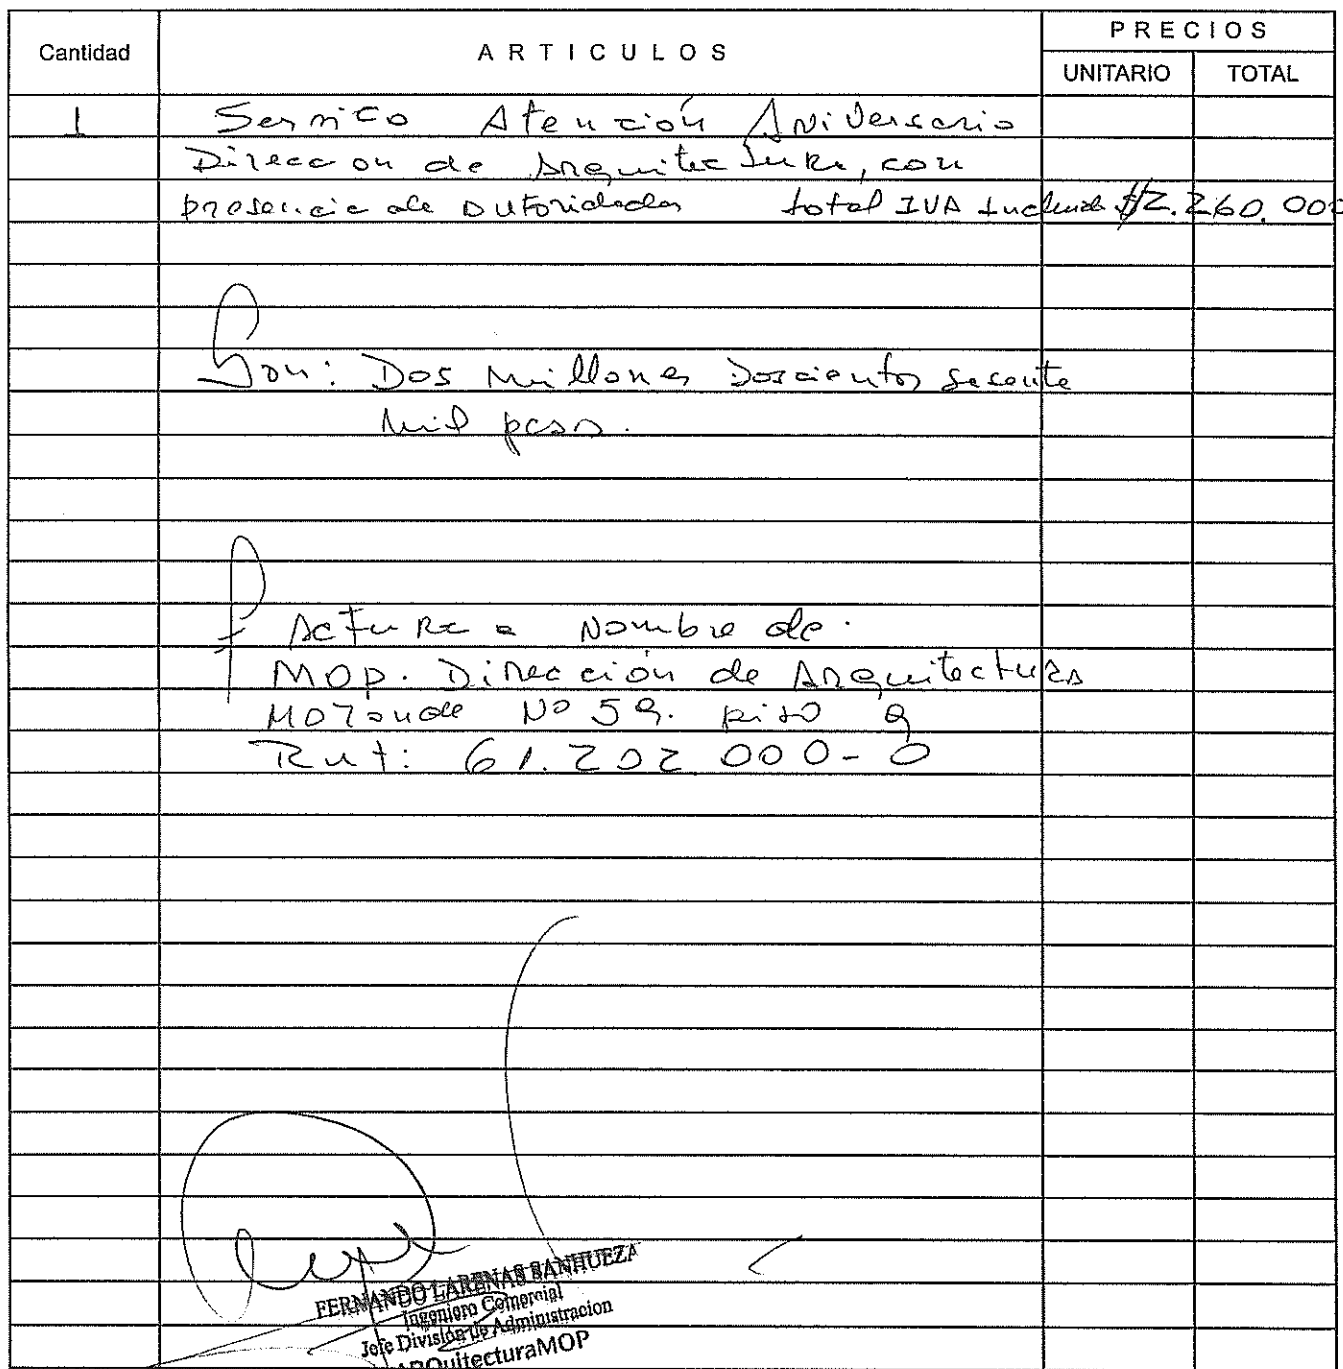 PRECIOS
Cantidad ARTICULOS UNITARIO TOTAL
1 Servicio Atención Aniversario
Direccion de Arquitectura, con
presencia de Autoridades total IVA Incluido $2.260.000
Son: Dos Millones Doscientos sesenta
Mil pesos.
Factura a Nombre de.
MOP. Dirección de Arquitectura
Morande Nº 59. piso 9
Rut: 61.202.000-0
FERNANDO LARENAS SANHUEZA
Ingeniero Comercial
Jefe División de Administracion
ARQuitecturaMOP